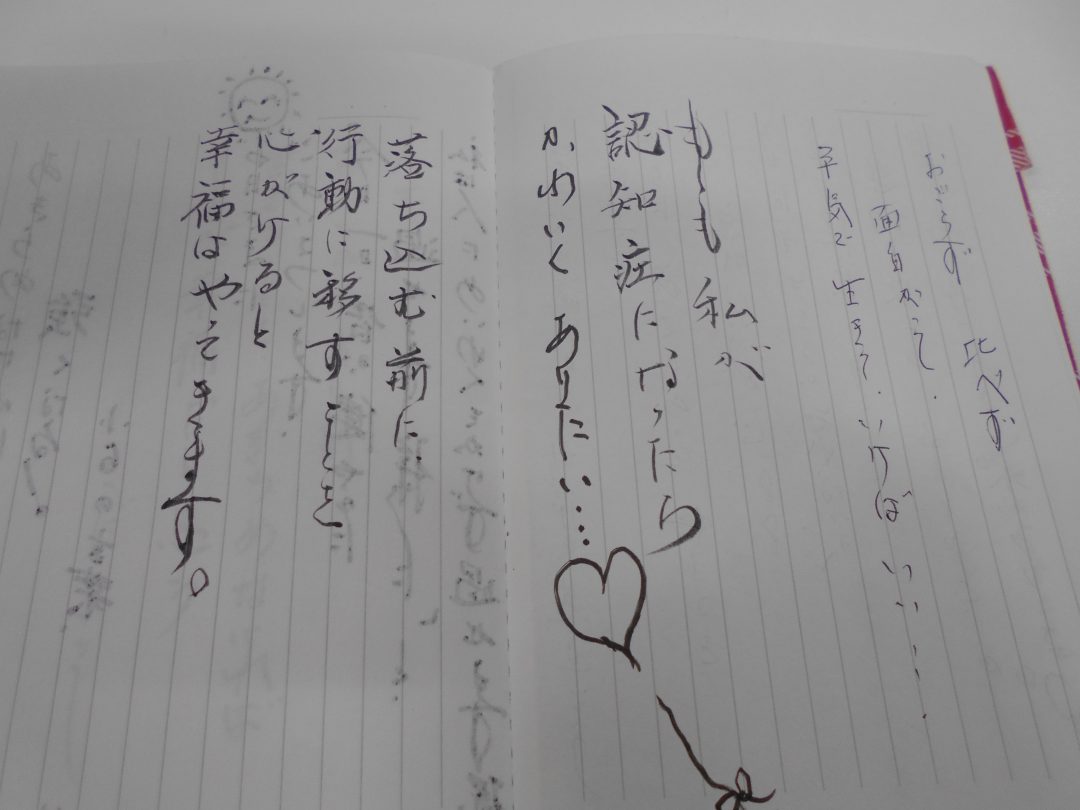 比べず
おごらず
面白がって
平気で生きて・いけばいい・・・・
もしも私が
認知症になったら
かわいくありたい・・・・・
落ち込む前に
行動に移すことを
心がけると
幸福はやってきます。